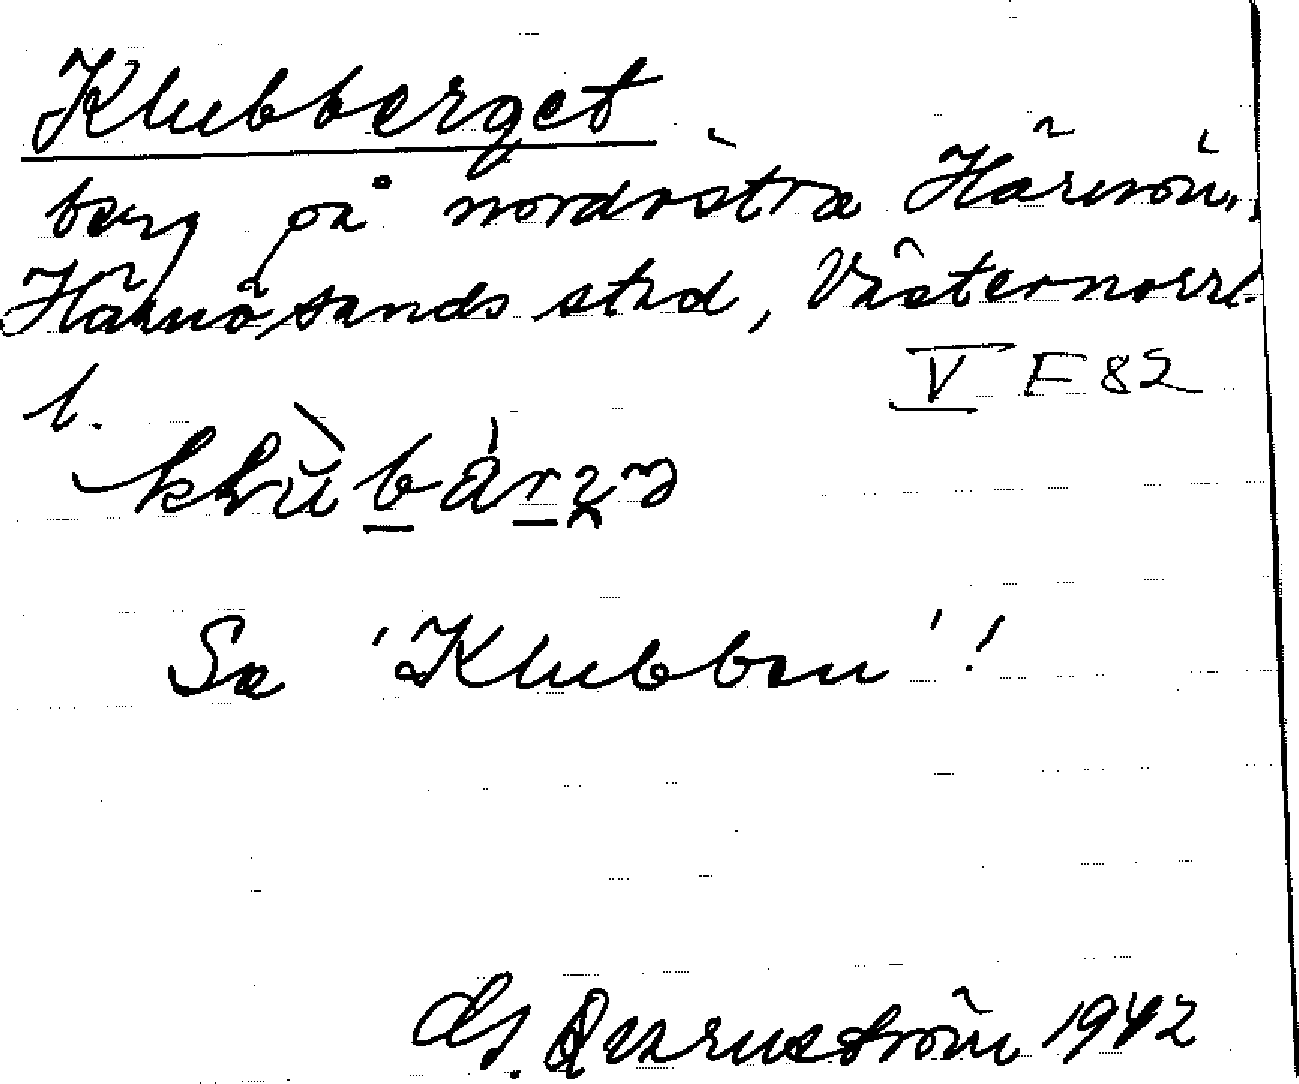 Klubberget
berg på nordöstra Härnön,
Härnösands stad, Västernorrl.
l.
V F 82
Se 'Klubben'!
1942